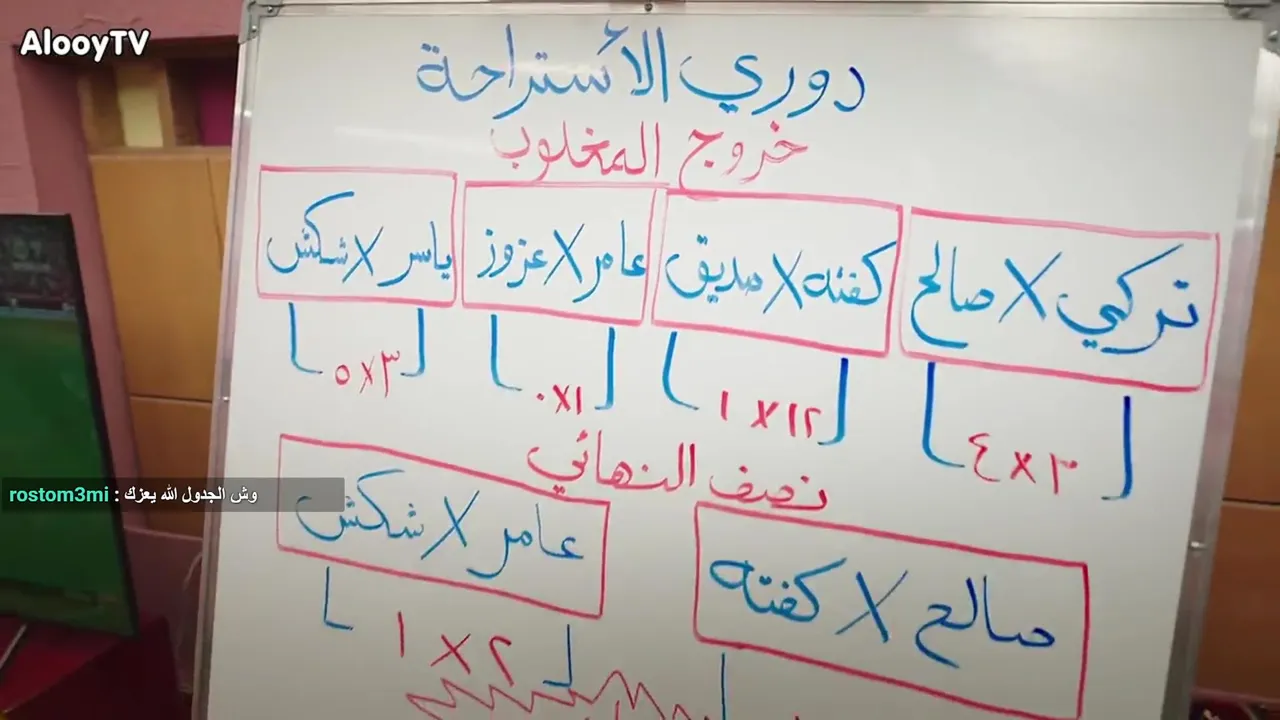 AlooyTV
دوري الأستراحة
خروج المغلوب
تركي X صالح
كفته X صديق
عامر X عزوز
ياسر X شكش
٣ x ٤
١٢ x ١
١ x ٠
٣ x ٥
نصف النهائي
صالح X كفته
عامر X شكش
٢ x ١
rostom3mi : وش الجدول الله يعزك